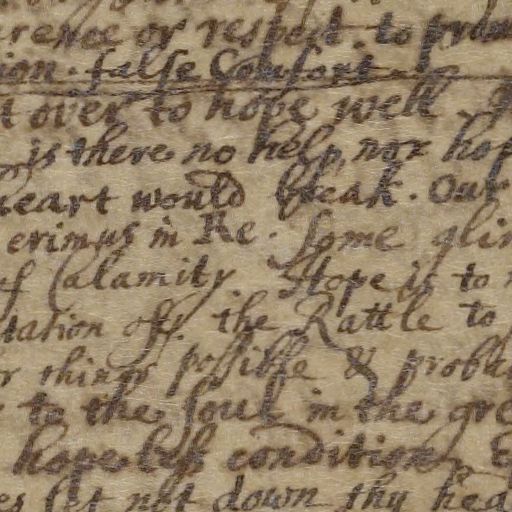 erence or respect to prom
ion. false Comfort
t over to hope well
is there no help nor hop
heart would break. Our
erimus in Re. Some glim
of Calamity Hope is to
tation off. the Rattle to
r things possible & proba
to the Soul in the gre
hopeless condition
es let not down thy hea